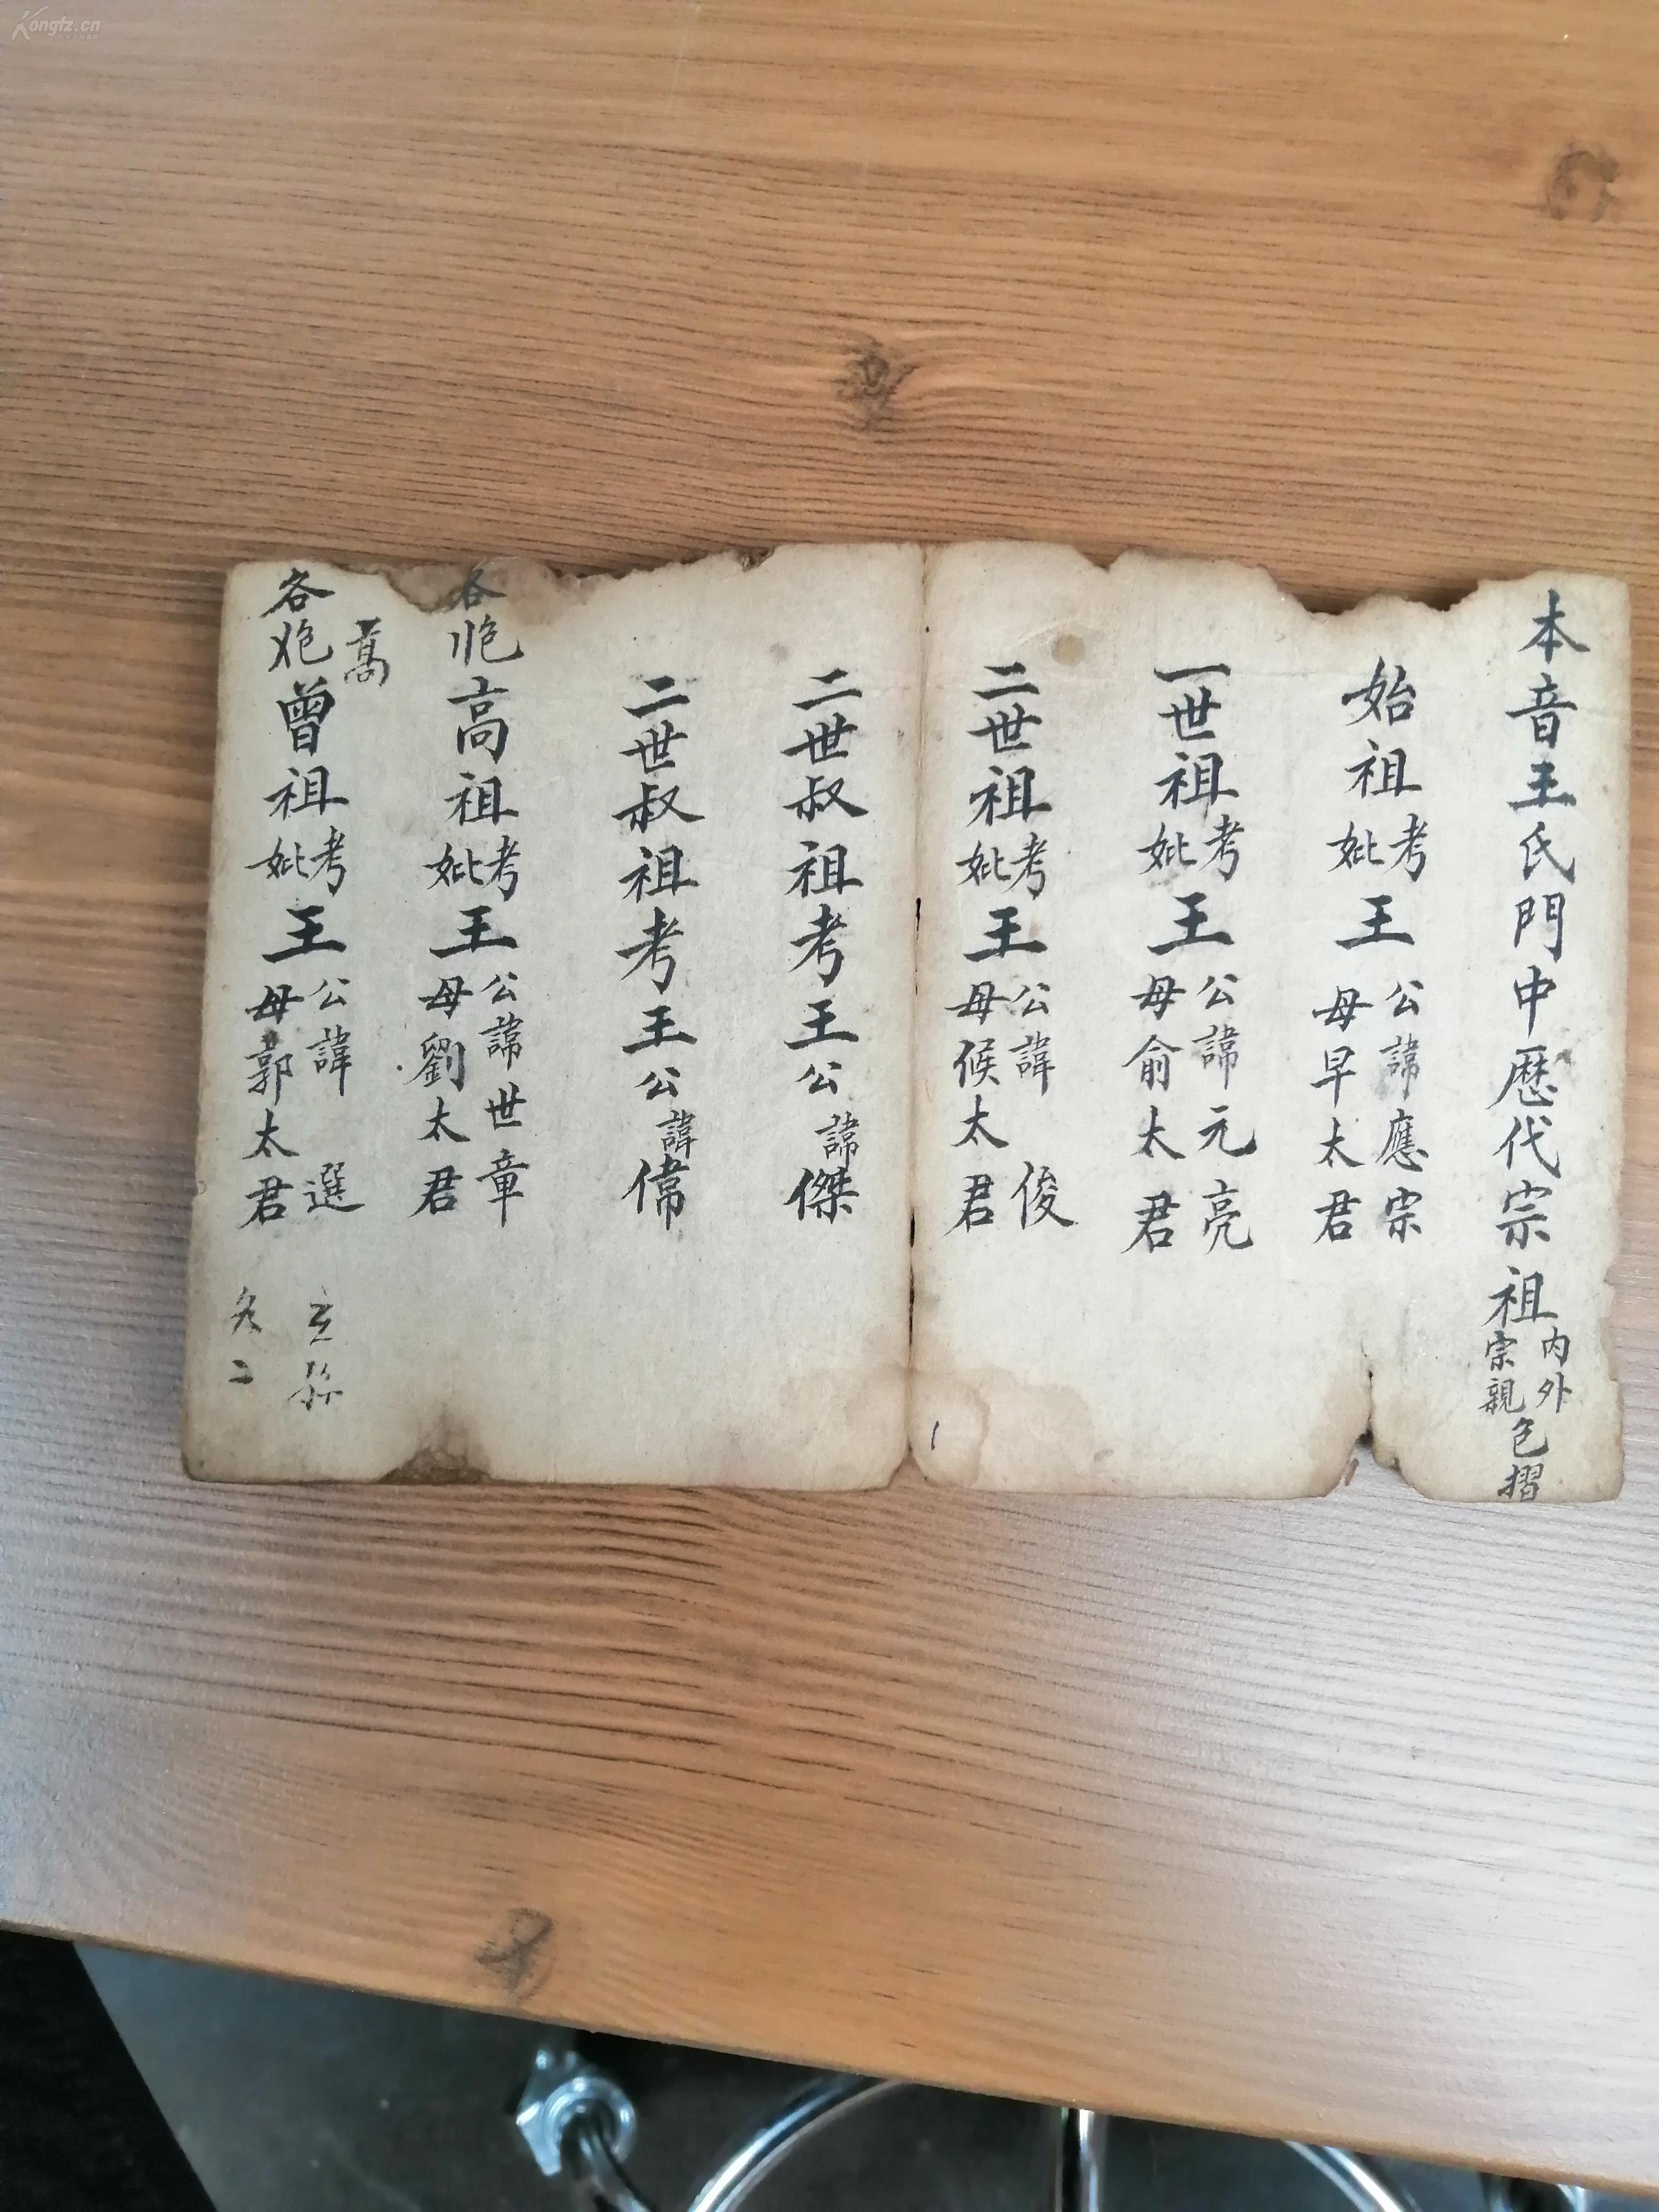 本音王氏門中歷代宗祖 內外 宗親 包摺
始祖 考 妣 王 公諱應宗 母早太君
一世祖 考 妣 王 公諱元亮 母俞太君
二世祖 考 妣 王 公諱俊 母候太君
二世叔祖考王公諱傑
二世叔祖考王公諱偉
各 高祖 考 妣 王 公諱世章 母劉太君
萬
各 曾祖 考 妣 王 公諱選 母郭太君
Kongfz.cn